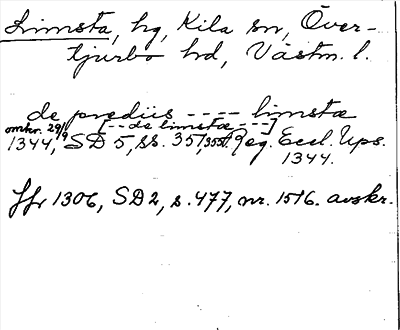 Limsta, hg, Kila sn, Över-
tjurbo hd, Västm. l.
de prediis ---- limstæ
[--de limstæ---]
omkr. 29/9
1344, SD 5, ss. 357, Reg. Eccl. Ups.
1344.
Jfr 1306, SD 2, s. 477, nr. 1516. avskr.